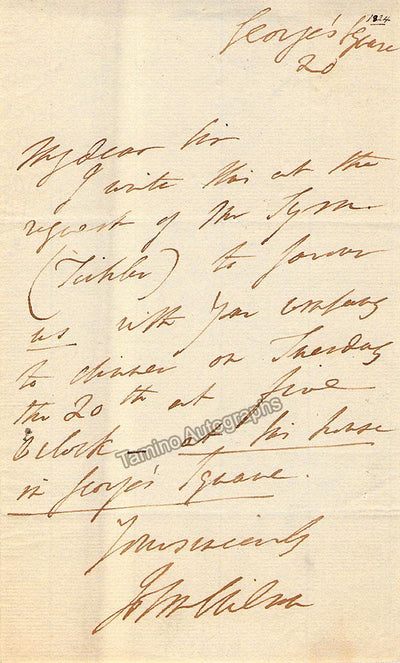 1834
George's Square
20
My dear Sir
I write this at the
request of Mr Syme
(Tickler) to favour
us with your company
to dinner on Tuesday
the 20th at five
o'clock — at his house
in George's Square.
Yours sincerely
John Wilson
Tamino Autographs